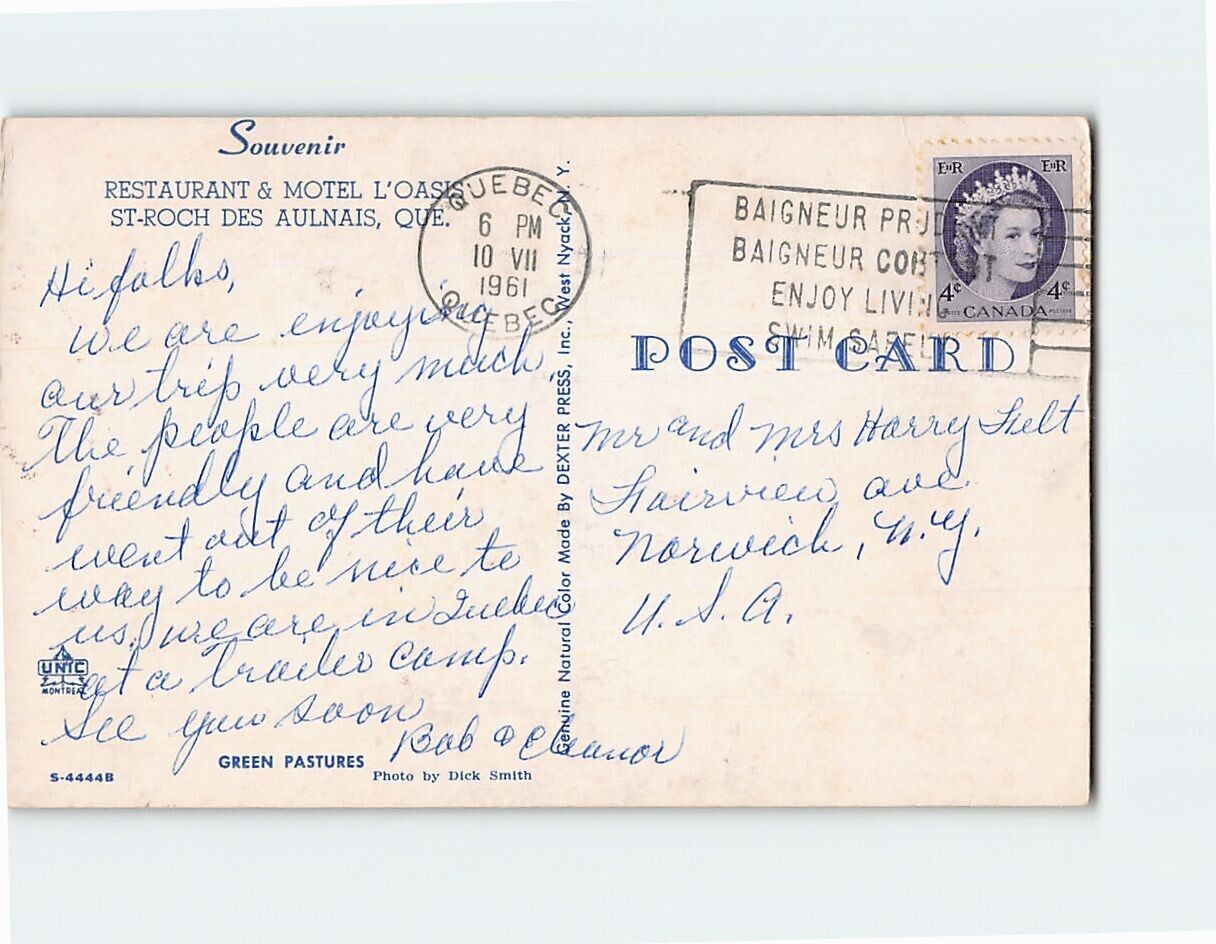 Souvenir
RESTAURANT & MOTEL L'OASIS
ST-ROCH DES AULNAIS, QUE.
Hi folks,
we are enjoying
our trip very much
The people are very
friendly and have
went out of their
way to be nice to
us. we are in Quebec
at a trailer camp.
See you soon
Bob & Eleanor
UNIC
MONTREAL
GREEN PASTURES
S-4444B
Photo by Dick Smith
Genuine Natural Color Made By DEXTER PRESS, Inc., West Nyack, N. Y.
QUEBEC
6 PM
10 VII
1961
QUEBEC
BAIGNEUR PRUDENT
BAIGNEUR CONTENT
ENJOY LIVING
SWIM SAFELY
EIIR EIIR
4¢ 4¢
POSTES CANADA POSTAGE
POST CARD
Mr and Mrs Harry Felt
Fairview ave
Norwich, N.Y.
U. S. A.